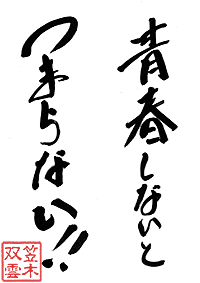 青春しないと
つまらない!!
笠木
双雲